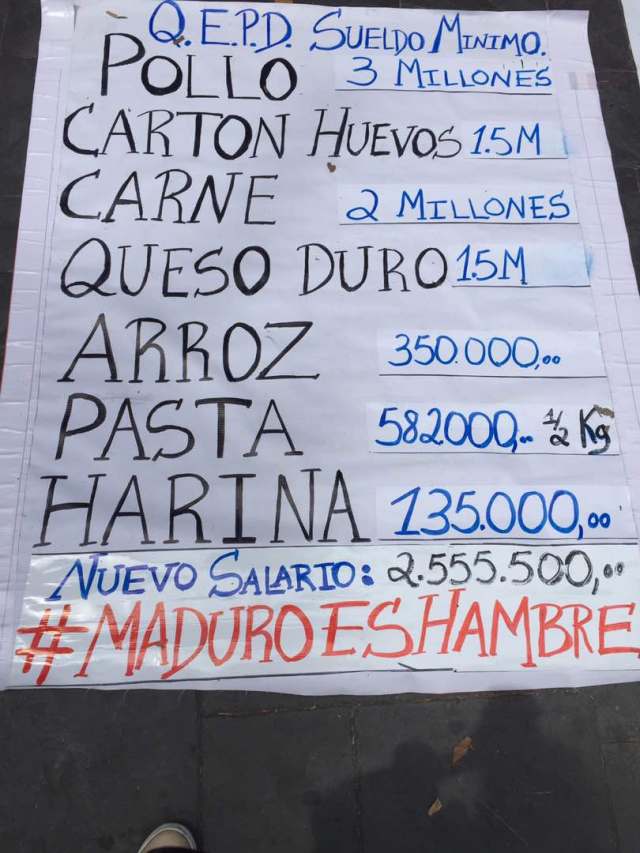 Q.E.P.D. SUELDO MINIMO.
POLLO 3 MILLONES
CARTON HUEVOS 1.5M
CARNE 2 MILLONES
QUESO DURO 1.5M
ARROZ 350.000,00
PASTA 582000,.. 1/2 Kg
HARINA 135.000,00
NUEVO SALARIO: 2.555.500,..
#MADURO ES HAMBRE